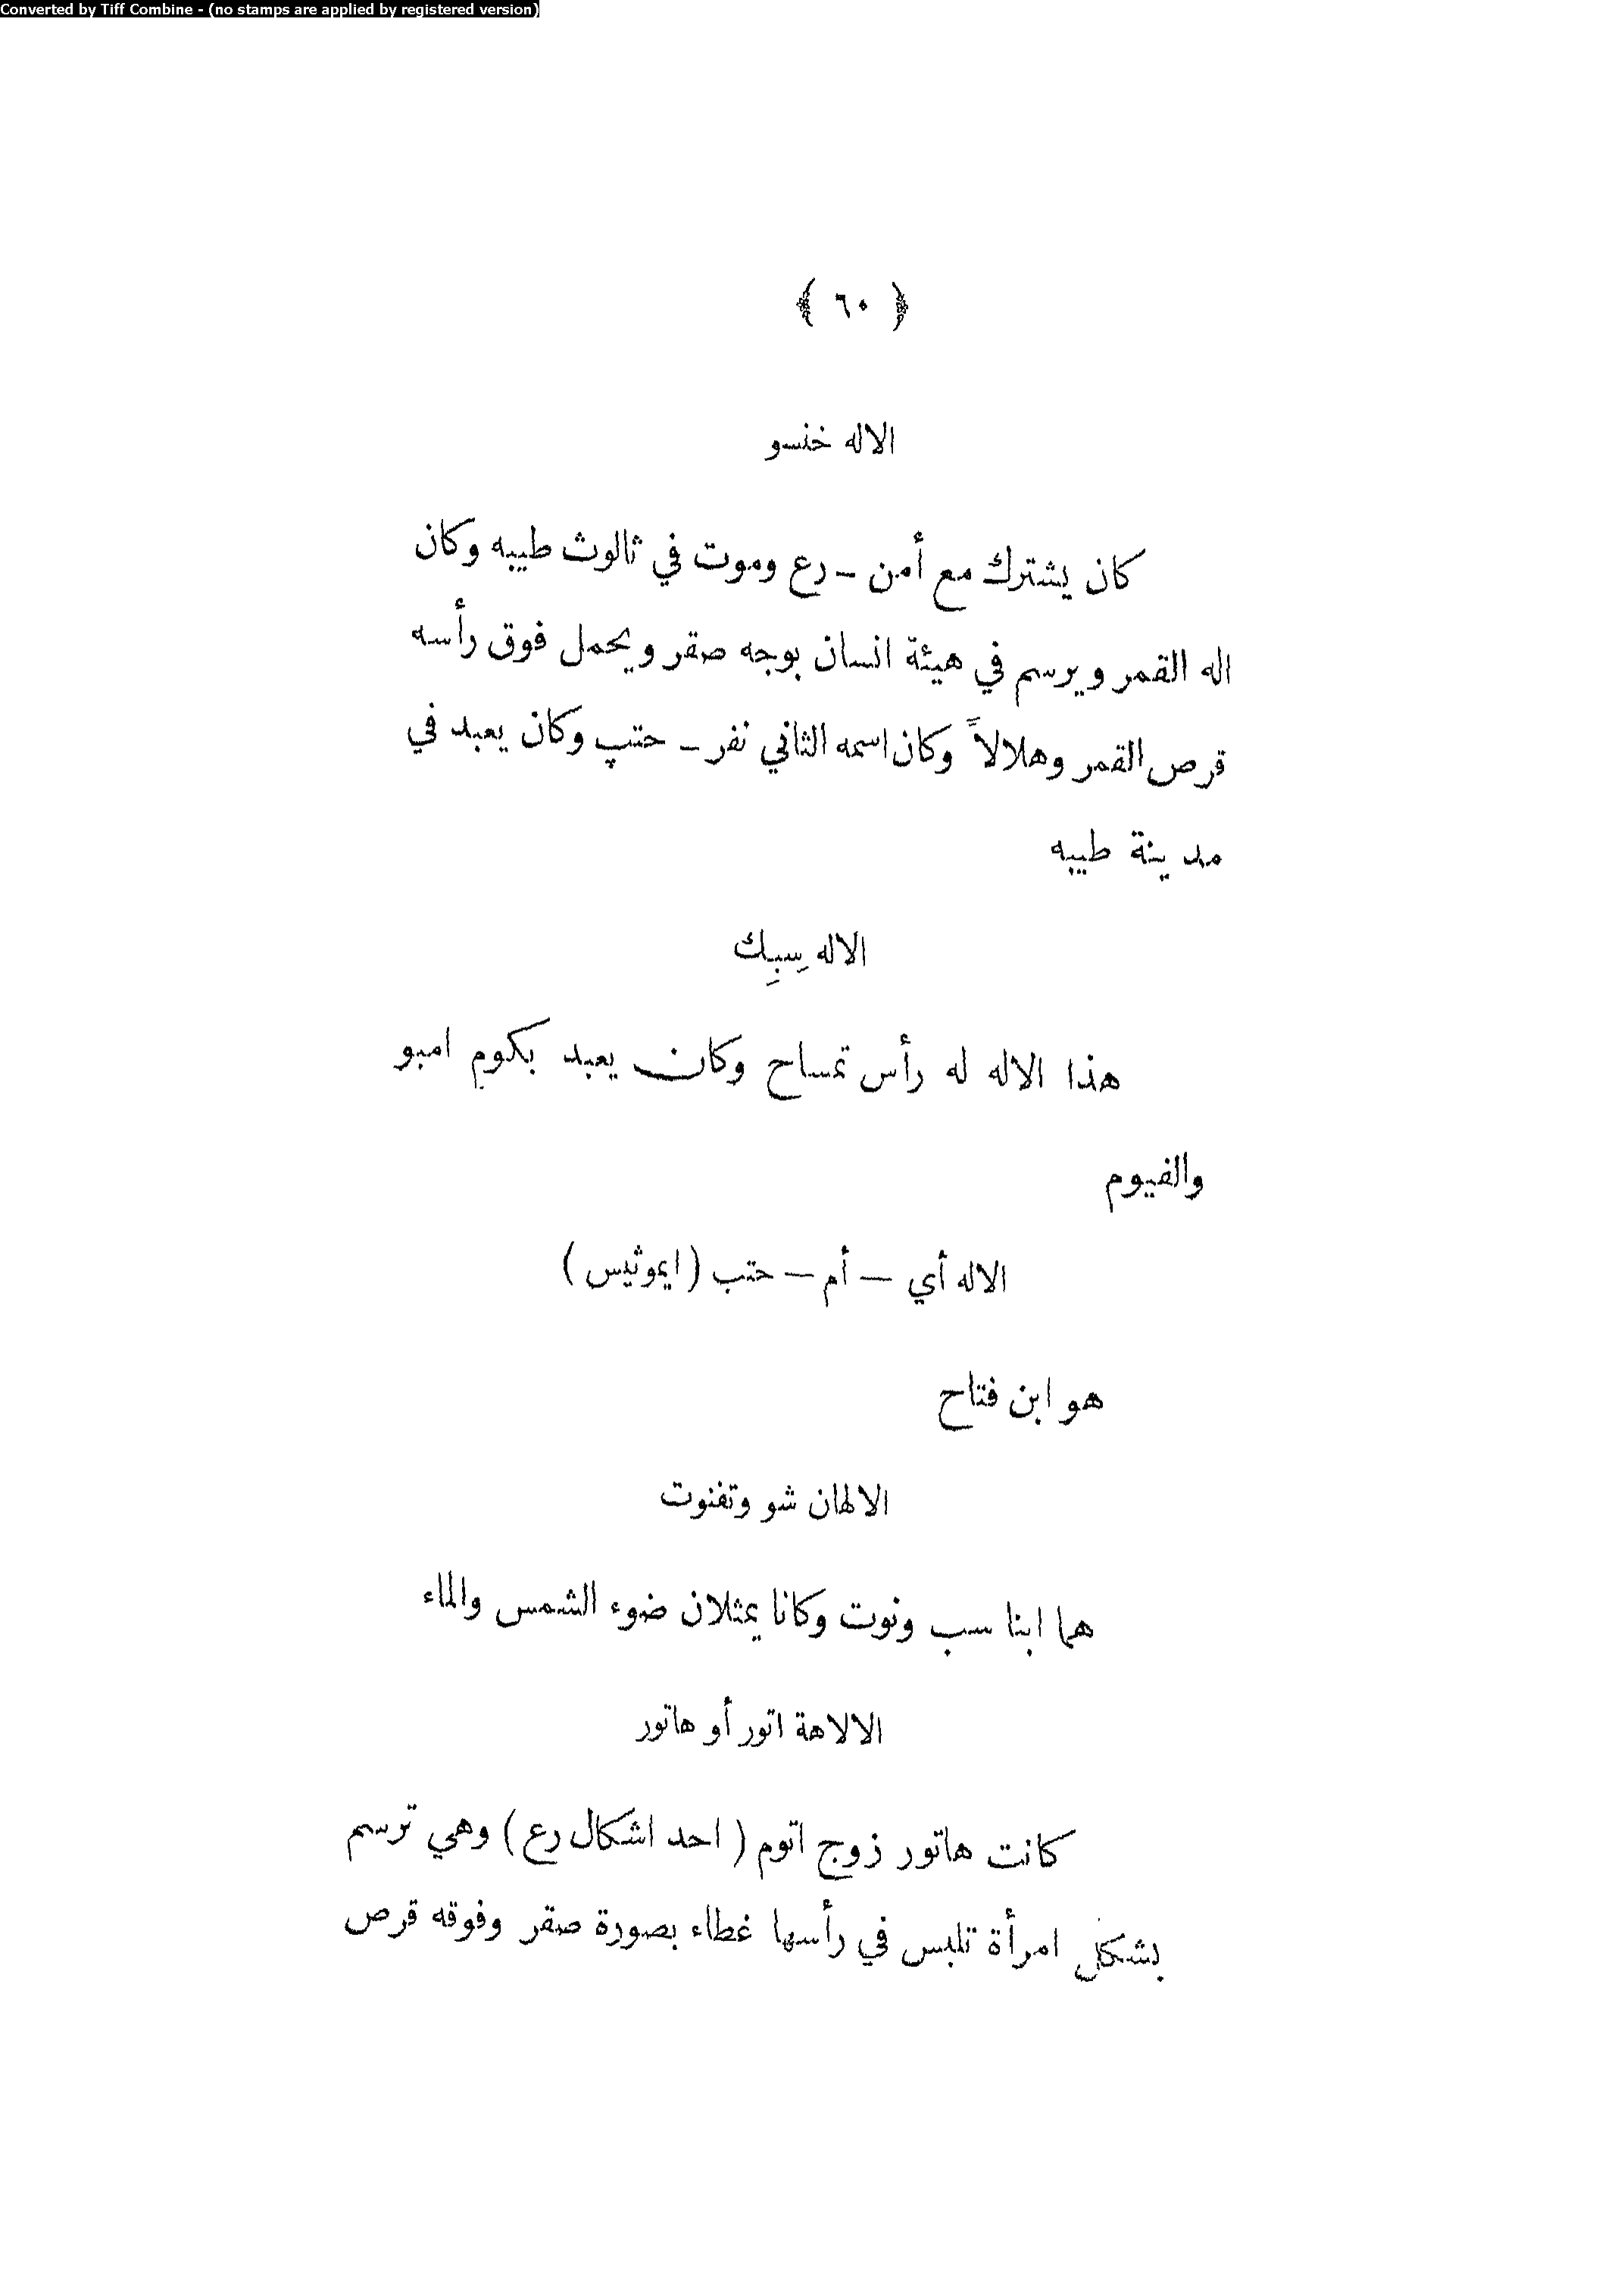 Converted by Tiff Combine - (no stamps are applied by registered version)
﴿ ٦٠ ﴾
الاله خنسو
كان يشترك مع أمن – رع وموت في ثالوث طيبه وكان
اله القمر ويرسم في هيئة انسان بوجه صقر ويحمل فوق رأسه
قرص القمر وهلالاً وكان اسمه الثاني نفر – حتپ وكان يعبد في
مدينة طيبه
الاله سِبِك
هذا الاله له رأس تمساح وكان يعبد بكوم امبو
والفيوم
الاله أي – أم – حتب ( ايموثيس )
هو ابن فتاح
الالهان شو وتفنوت
هما ابنا سب ونوت وكانا يمثلان ضوء الشمس والماء
الالاهة اتور أو هاتور
كانت هاتور زوج اتوم ( احد اشكال رع ) وهي ترسم
بشكل امرأة تلبس في رأسها غطاء بصورة صقر وفوقه قرص